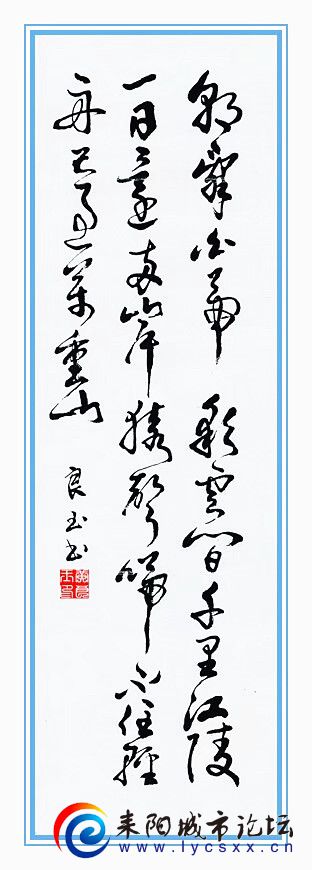 朝辭白帝彩雲間千里江陵
一日還兩岸猿聲啼不住輕
舟已過萬重山
良玉书
耒阳城市论坛
www.lycsxx.cn